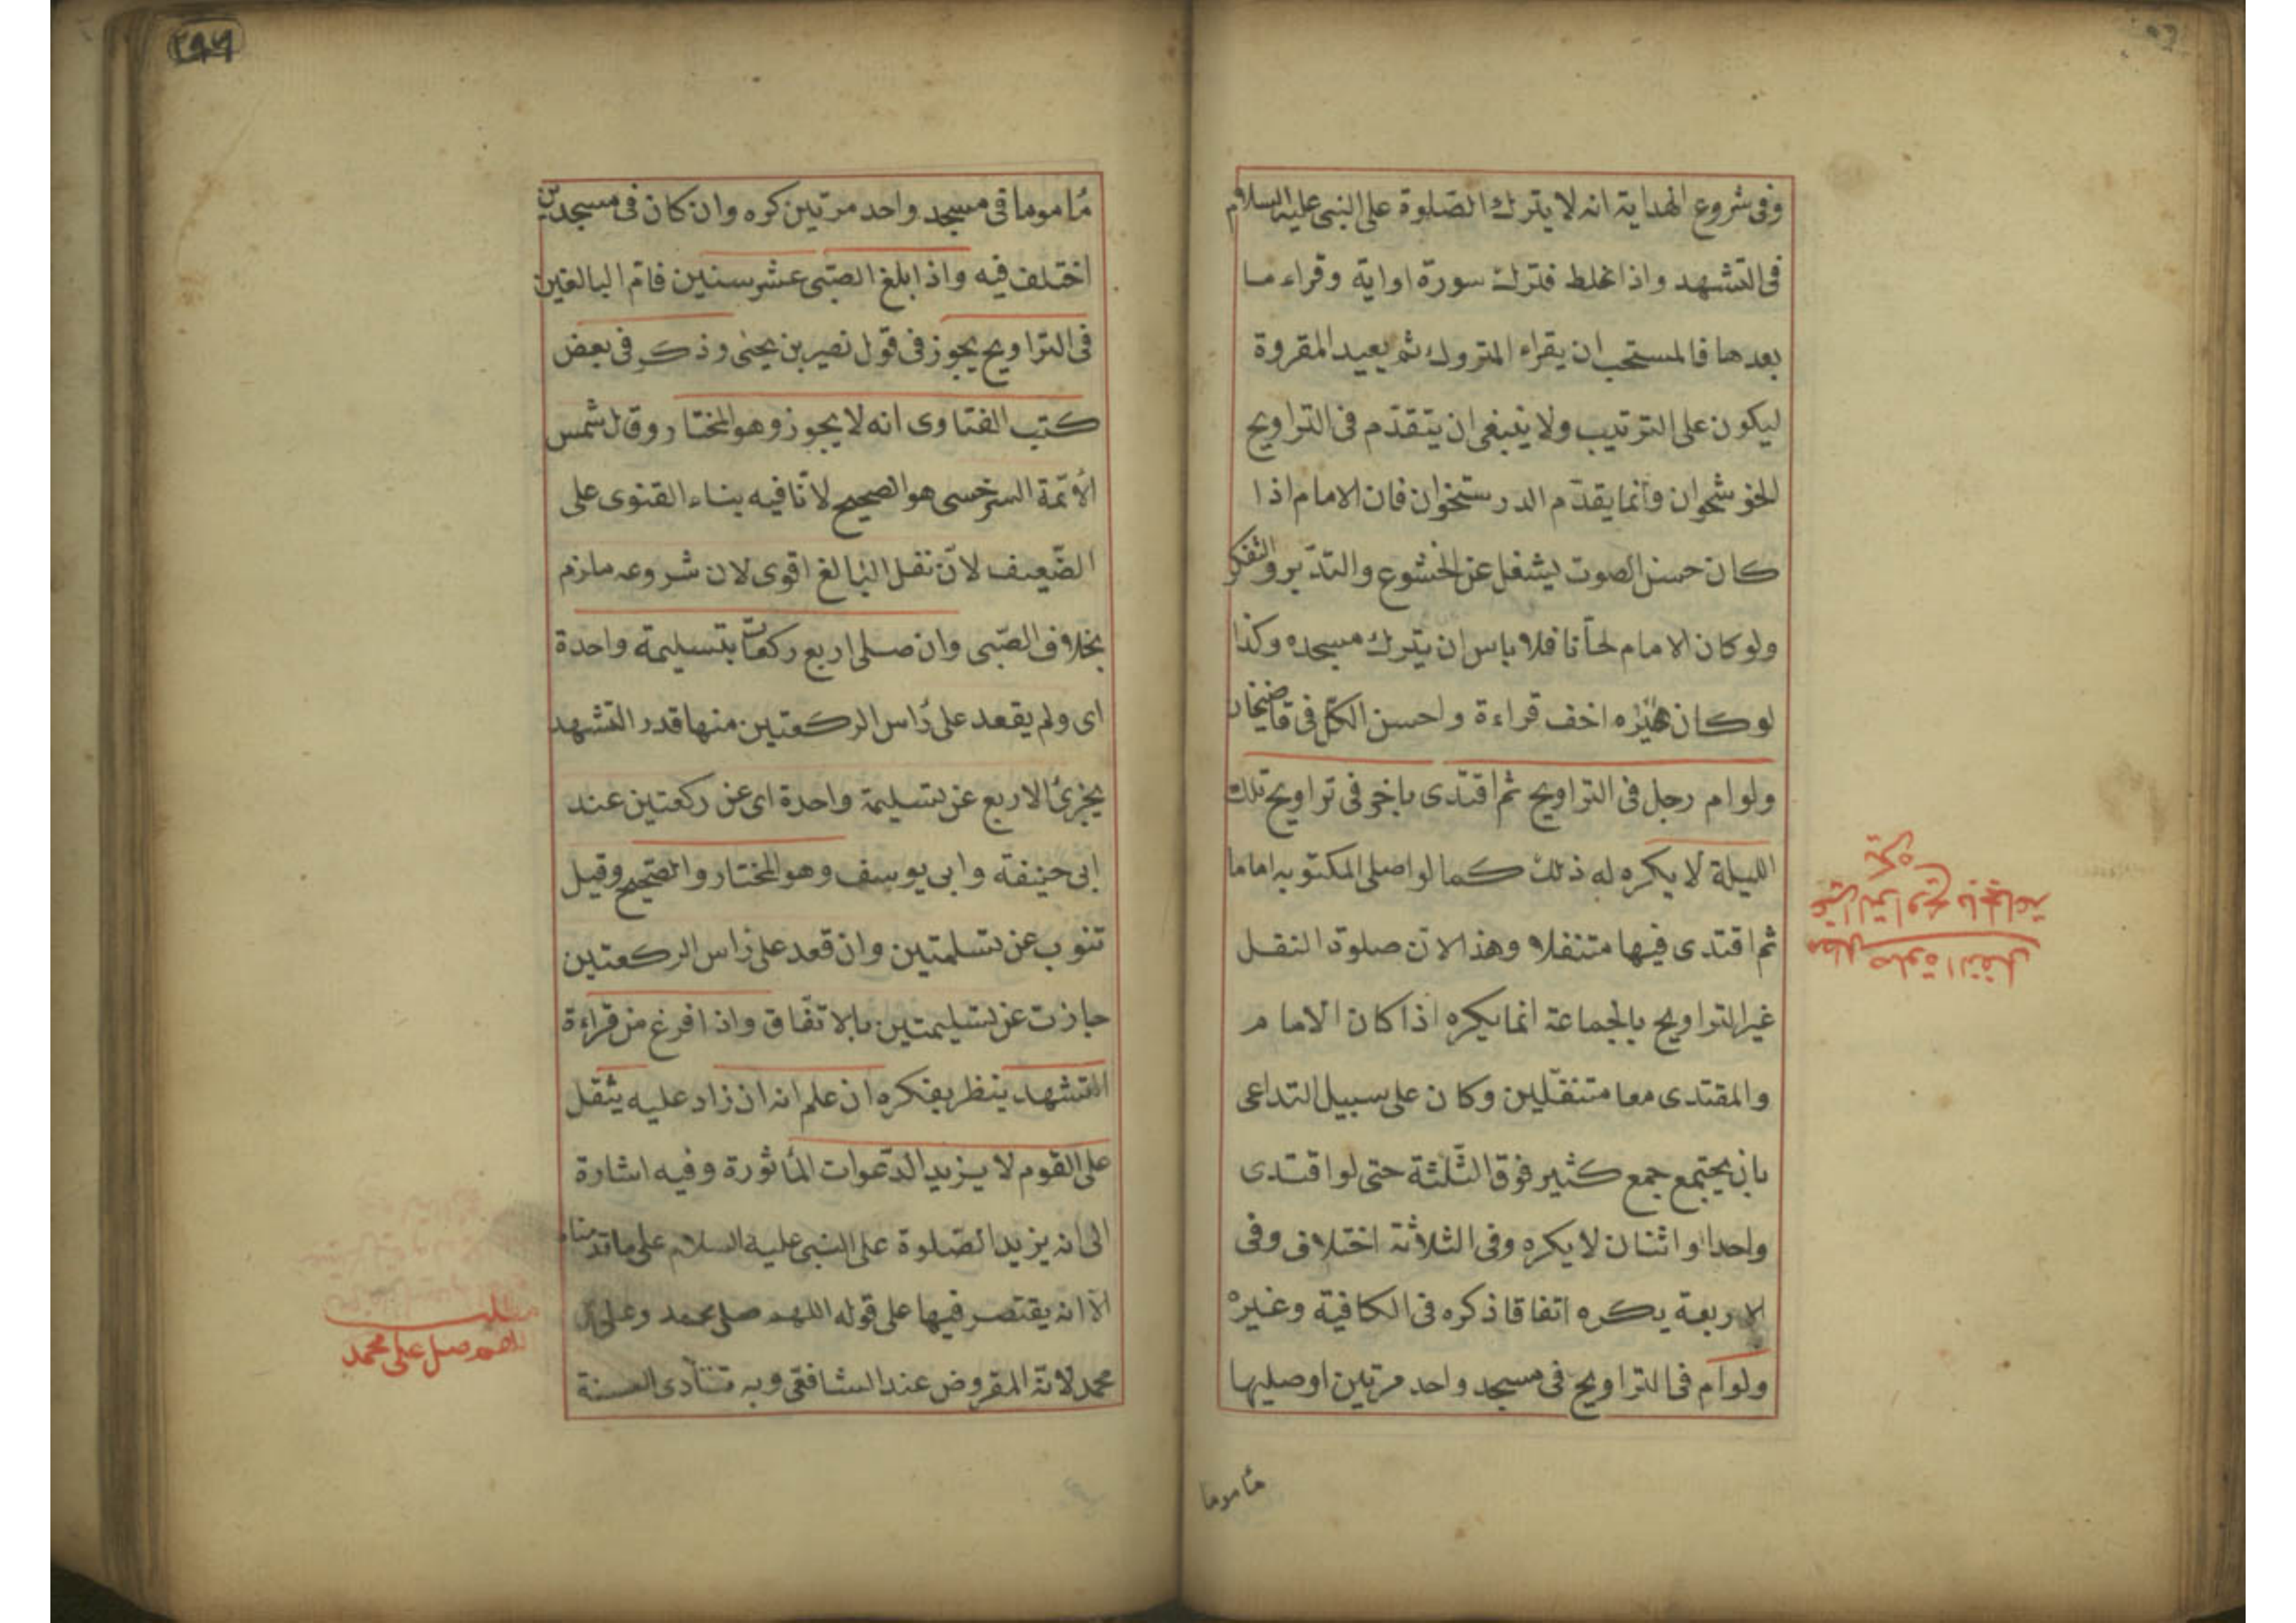 وفى شروع الهداية انه لا يترك الصلوة على النبى عليه السلام
فى التشهد واذا غلط فترك سورة او اية وقراء ما
بعدها فالمستحب ان يقراء المتروك ثم يعيد المقروة
ليكون على الترتيب ولا ينبغى ان يتقدّم فى التراويح
الخوشخوان وانما يقدّم الدرستخوان فان الامام اذا
كان حسن الصوت يشغل عن الخشوع والتدبر والتفكر
ولو كان الامام لحّانا فلا باس ان يترك مسجده وكذا
لو كان غيره اخف قراءة واحسن الكلّ فى قاضيخان
ولو ام رجل فى التراويح ثم اقتدى باخر فى تراويح تلك
الليلة لا يكره له ذلك كما لو اصلى المكتوبه اماما
ثم اقتدى فيها متنفلا وهذا لان صلوة النفل
غير التراويح بالجماعة انما يكره اذا كان الامام
والمقتدى معا متنفّلين وكان على سبيل التداعى
بان يجتمع جمع كثير فوق الثّلثة حتى لو اقتدى
واحد او اثنان لا يكره وفى الثلاثة اختلاف وفى
الاربعة يكره اتفاقا ذكره فى الكافية وغيره
ولو ام فى التراويح فى مسجد واحد مرتين او صليها
مأموما
مطلب صلوة النفل
غير التراويح بالجماعة
يكره
٢٩٦
مأموما فى مسجد واحد مرتين كره وان كان فى مسجدين
اختلف فيه واذا بلغ الصّبى عشر سنين فامّ البالغين
فى التراويح يجوز فى قول نصير بن يحيى وذكر فى بعض
كتب الفتاوى انه لا يجوز وهو المختار وقال شمس
الأئمّة السرخسى هو الصحيح لانّا فيه بناء القنوى على
الضّعيف لانّ نفل البالغ اقوى لان شروعه ملزم
بخلاف الصّبى وان صلى اربع ركعات بتسليمة واحدة
اى ولم يقعد على رأس الركعتين منها قدر التشهد
يجزئ الاربع عن تسليمة واحدة اى عن ركعتين عند
ابى حنيفة وابى يوسف وهو المختار والصّحيح وقيل
تنوب عن تسلمتين وان قعد على رأس الركعتين
جازت عن تسليمتين بالاتفّاق واذا فرغ من قراءة
التشهد ينظر بفكره ان علم انه ان زاد عليه يثقل
على القوم لا يزيد الدّعوات المأثورة وفيه اشارة
الى انه يزيد الصّلوة على النبى عليه السلام على ما قدمناه
الّا انه يقتصر فيها على قوله اللهم صل محمد وعلى آل
محمد لانّه المفروض عند الشافعى وبه تتأدى السنة
مطلب
اللهم صل على محمد